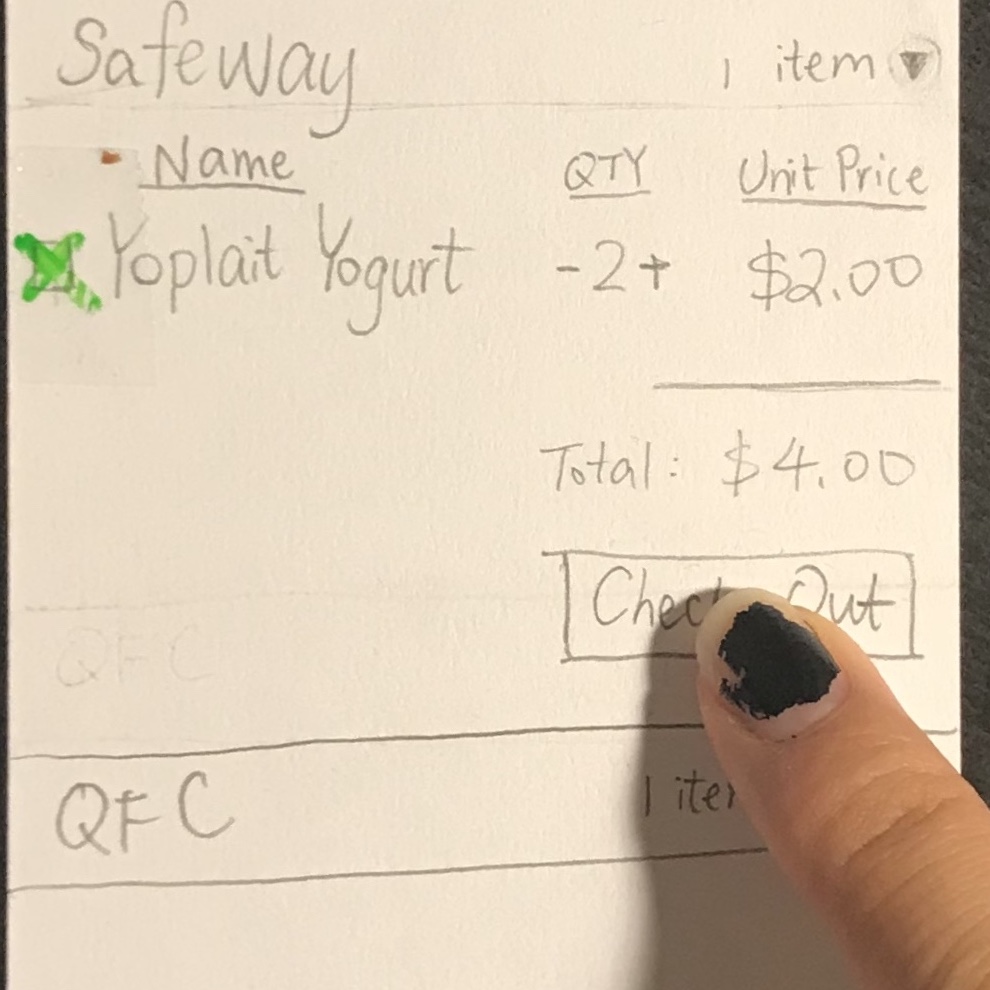 Safeway 1 item ▼
Name QTY Unit Price
Yoplait Yogurt -2+ $2.00
Total: $4.00
Out
QFC
QFC 1